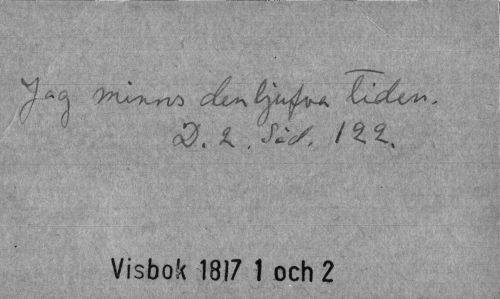 Jag minns den ljufva tiden.
D. 2. Sid. 122.
Visbok 1817 1 och 2